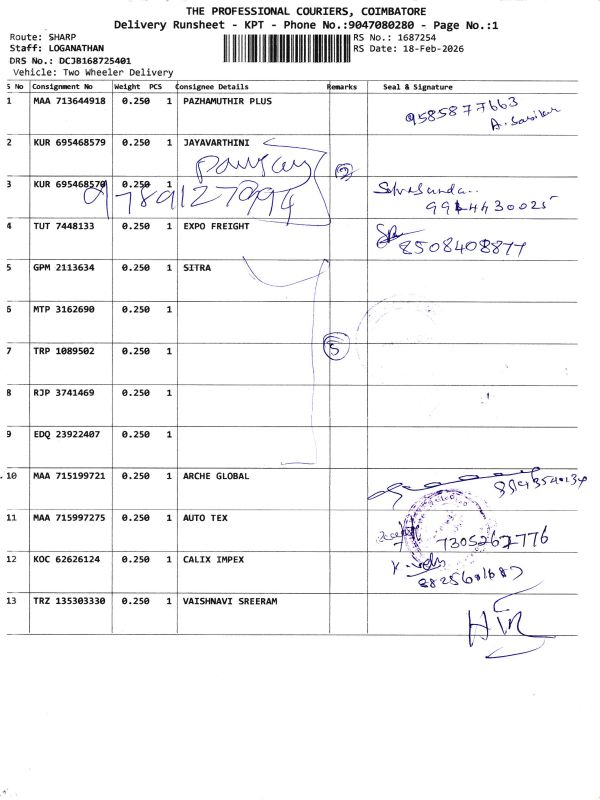 THE PROFESSIONAL COURIERS, COIMBATORE
Delivery Runsheet - KPT - Phone No.:9047080280 - Page No.:1
Route: SHARP
RS No.: 1687254
Staff: LOGANATHAN
RS Date: 18-Feb-2026
DRS No.: DCJB168725401
Vehicle: Two Wheeler Delivery
S No Consignment No Weight PCS Consignee Details Remarks Seal & Signature
1 MAA 713644918 0.250 1 PAZHAMUTHIR PLUS 9585877663
2 KUR 695468579 0.250 1 JAYAVARTHINI
2
3 KUR 695468570 0.250 1
9789127094
4 TUT 7448133 0.250 1 EXPO FREIGHT 8508408877
5 GPM 2113634 0.250 1 SITRA
6 MTP 3162690 0.250 1
7 TRP 1089502 0.250 1 5
8 RJP 3741469 0.250 1
9 EDQ 23922407 0.250 1
10 MAA 715199721 0.250 1 ARCHE GLOBAL
11 MAA 715997275 0.250 1 AUTO TEX 7305267776
12 KOC 62626124 0.250 1 CALIX IMPEX
13 TRZ 135303330 0.250 1 VAISHNAVI SREERAM